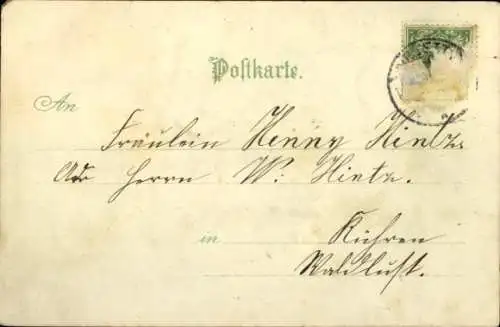 Postkarte.
An
Fräulein Henny Hintz.
Adr Herrn W. Hintz.
in Kühren
Waldlust.